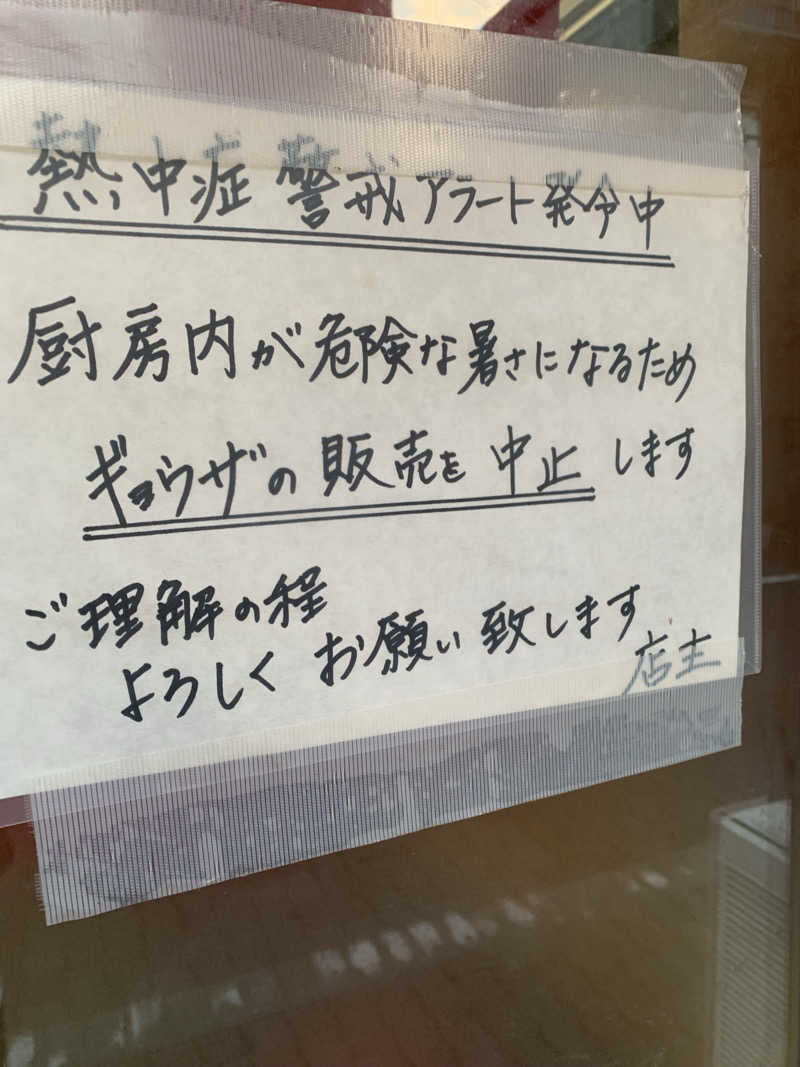 熱中症警戒アラート発令中
厨房内が危険な暑さになるため
ギョウザの販売を中止します
ご理解の程
よろしくお願い致します
店主